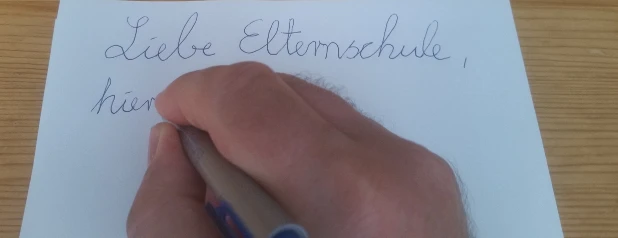 Liebe Elternschule,
hier